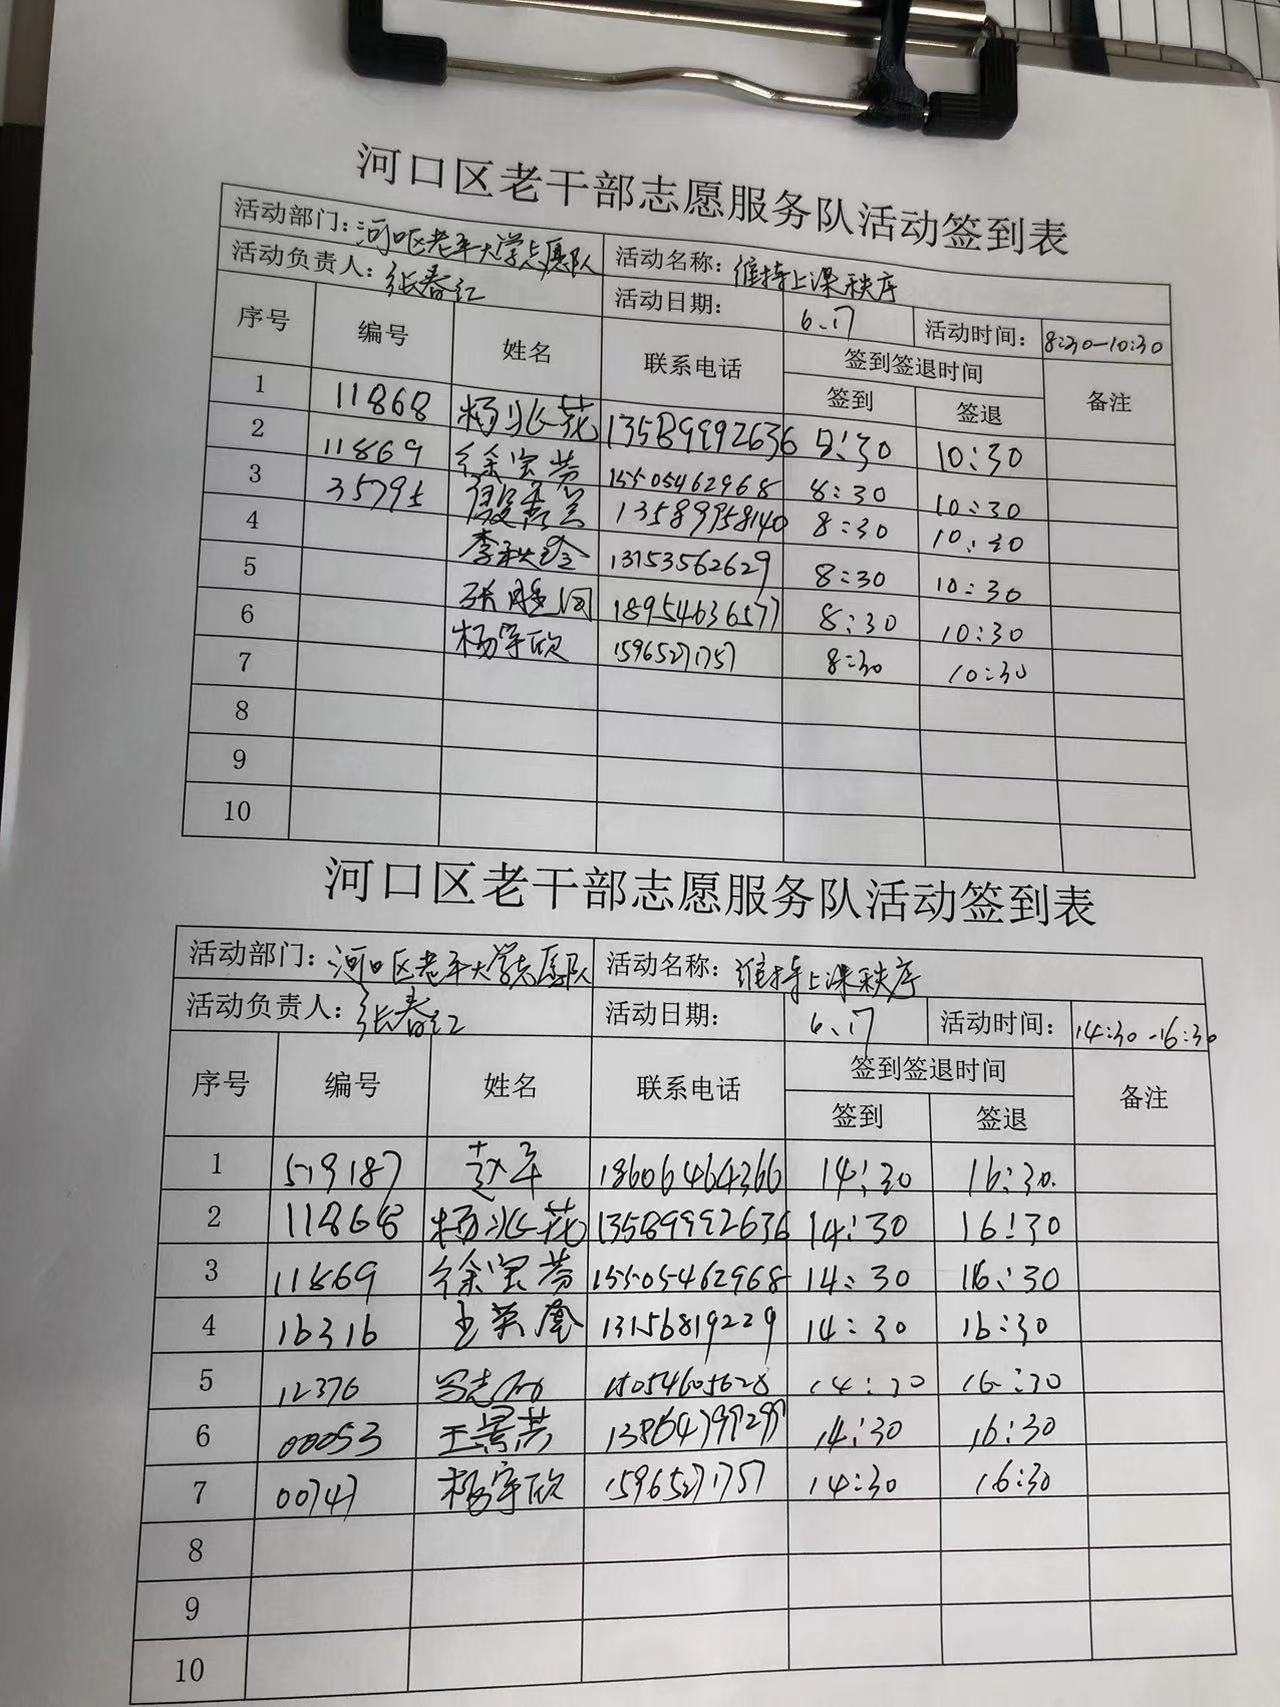 河口区老干部志愿服务队活动签到表
活动部门：河口区老年大学志愿队 活动名称：维持上课秩序
活动负责人：张春红 活动日期： 6.17 活动时间： 8:30-10:30
序号 编号 姓名 联系电话 签到签退时间 备注
签到 签退
1 11868 杨兆花 13589992636 8:30 10:30
2 11869 徐宝芳 15505462968 8:30 10:30
3 35795 秀兰 13589958140 8:30 10:30
4 李秋玲 13153562629 8:30 10:30
5 张 18954636577 8:30 10:30
6 杨宇欣 15965271757 8:30 10:30
7
8
9
10
河口区老干部志愿服务队活动签到表
活动部门：河口区老年大学志愿队 活动名称：维持上课秩序
活动负责人：张春红 活动日期： 6.17 活动时间： 14:30-16:30
序号 编号 姓名 联系电话 签到签退时间 备注
签到 签退
1 579187 赵军 18606464366 14:30 16:30.
2 11868 杨兆花 13589992636 14:30 16:30
3 11869 徐宝芳 15505462968 14:30 16:30
4 16316 王英 13156819229 14:30 16:30
5 12376 15054605628 14:30 16:30
6 00053 王景芸 13864799299 14:30 16:30
7 00747 杨宇欣 15965271757 14:30 16:30
8
9
10